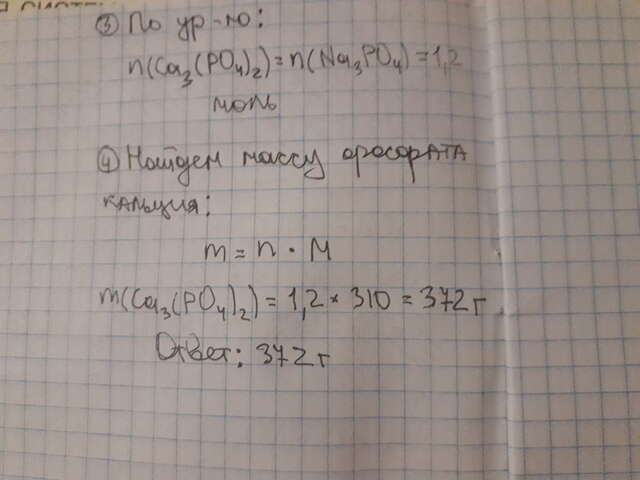 ③ По ур-ю:
n(Ca₃(PO₄)₂) = n(Na₃PO₄) = 1,2
моль
④ Найдем массу фосфата
кальция:
m = n · M
m(Ca₃(PO₄)₂) = 1,2 * 310 = 372 г
Ответ: 372 г